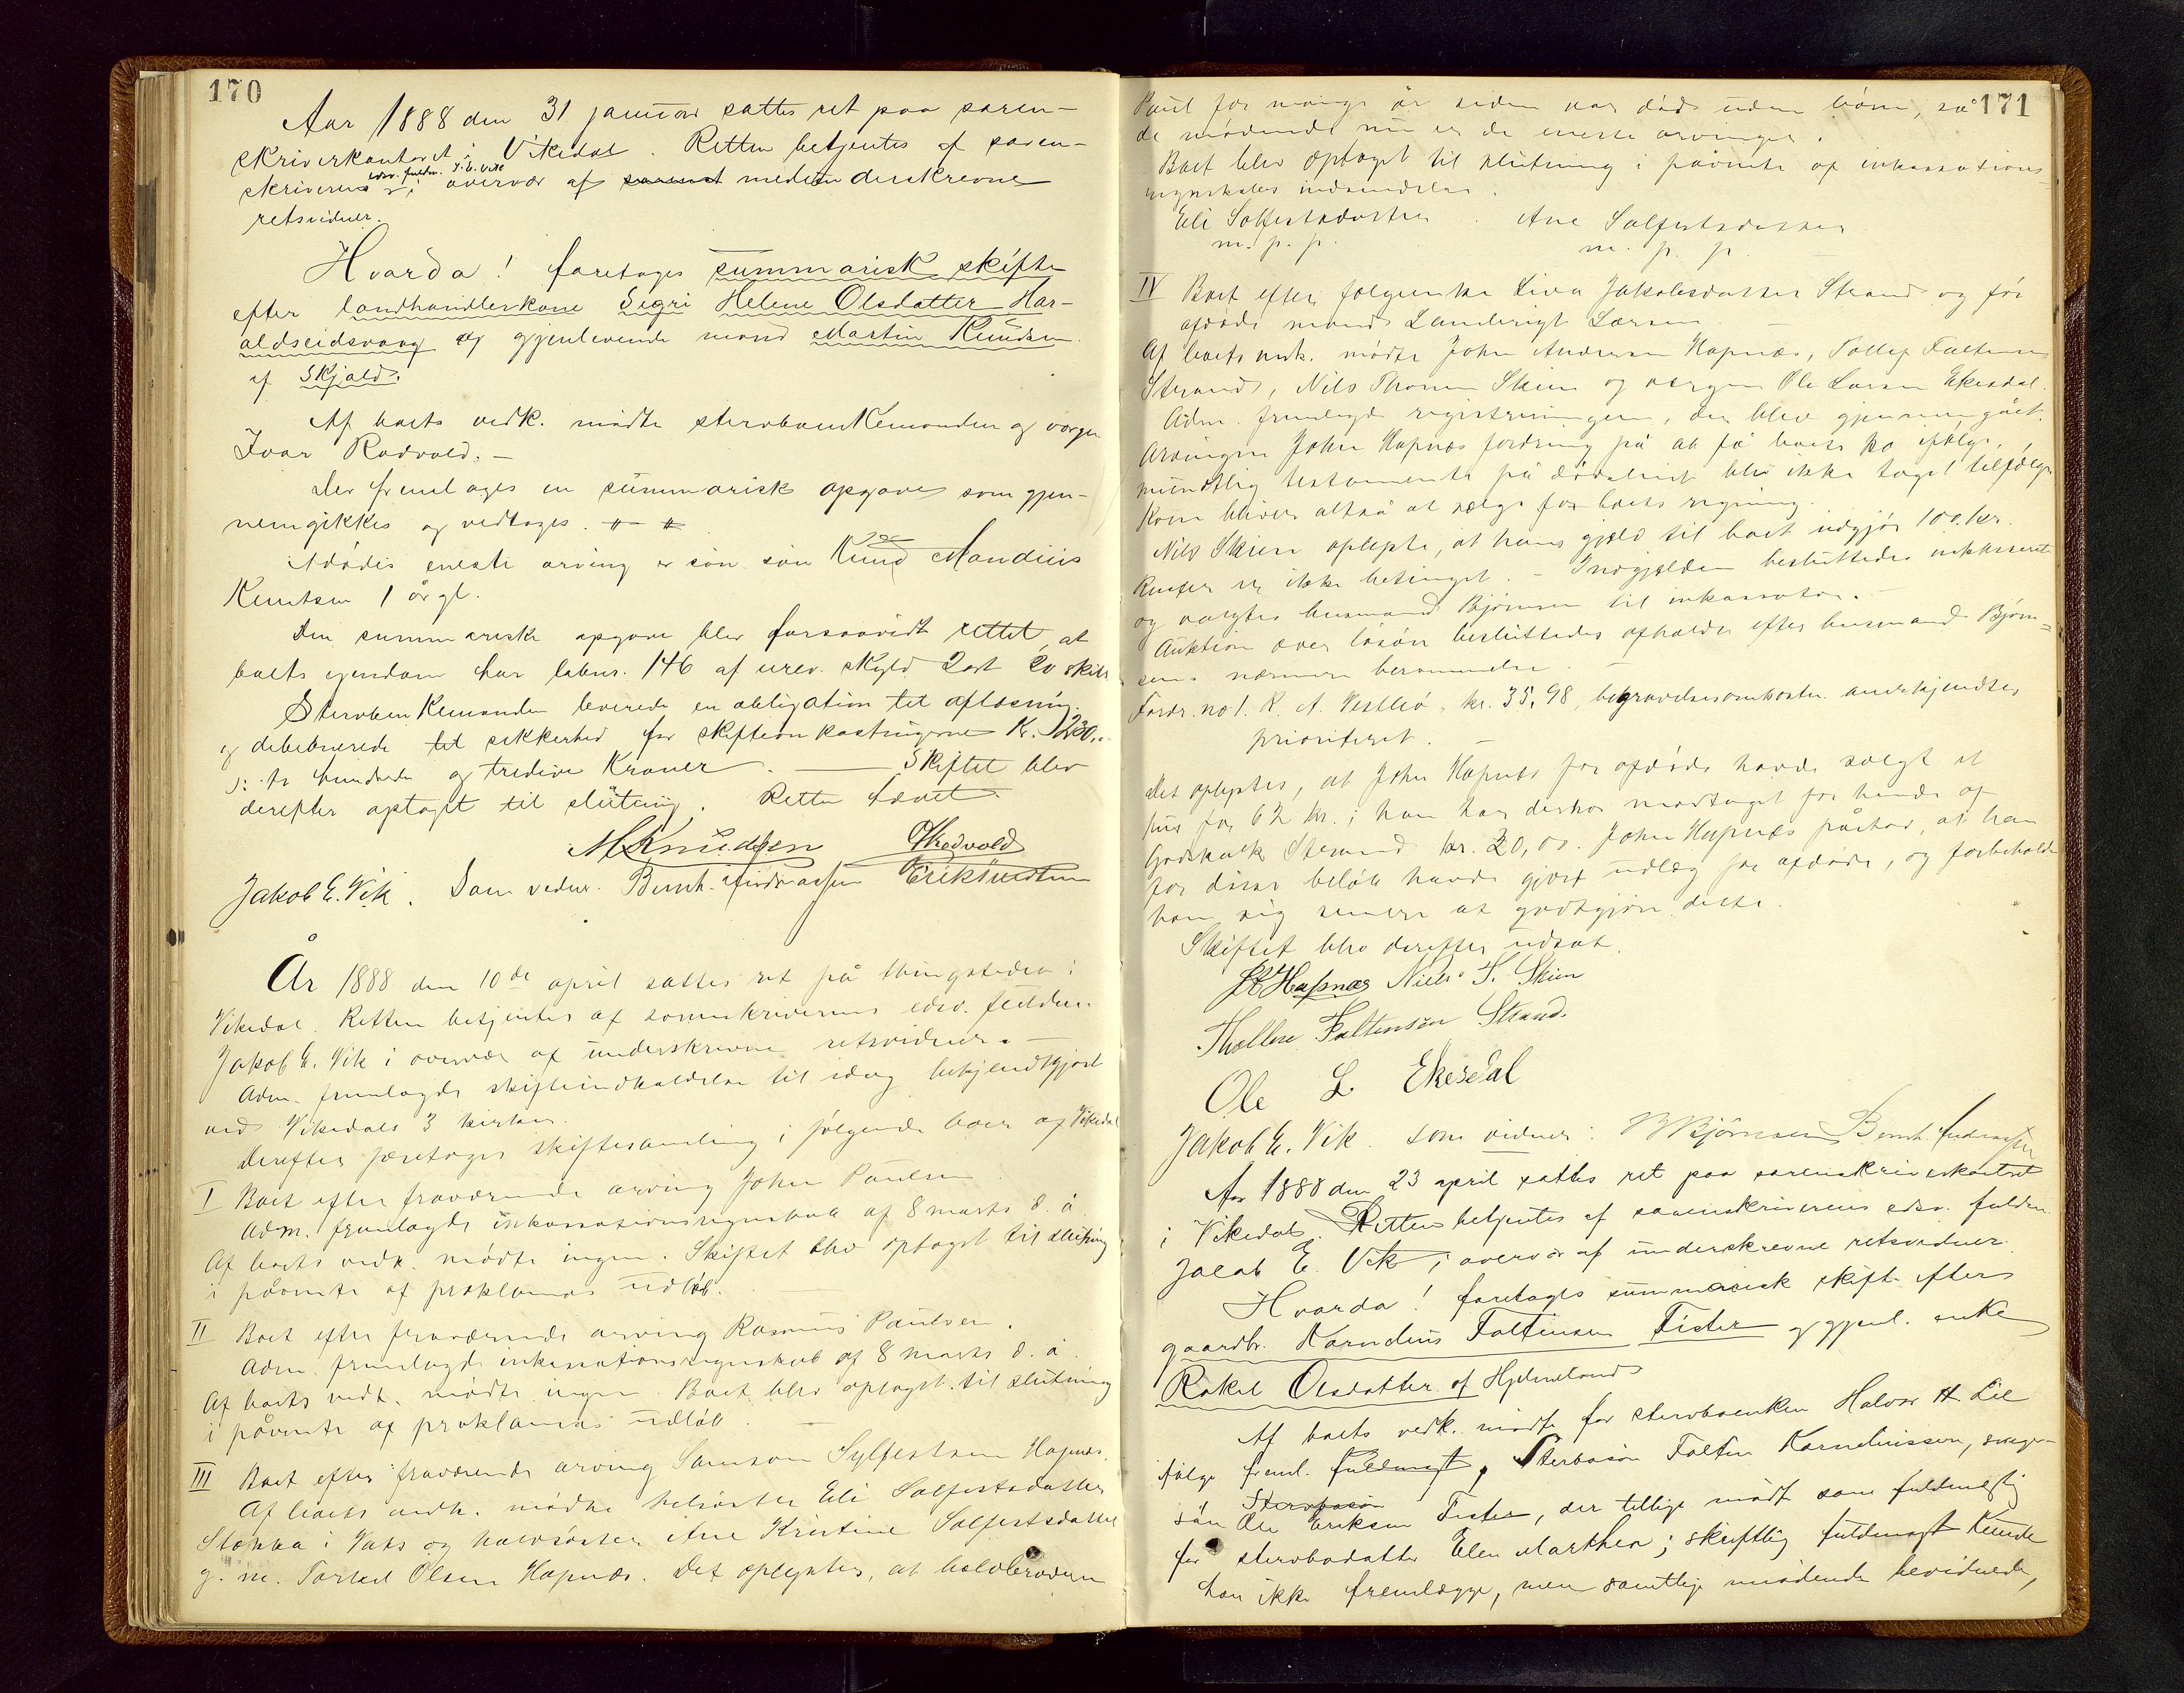 170
Aar 1888 den 31 januar sattes ret paa soren-
skriverkontoret i Vikedal. Retten betjentes af soren-
skriverens edsv. fuldm. J. E. Vik i overvær af medunderskrevne
retsvidner.
Hvorda! foretages summarisk skifte
efter landhandlerkone Segri Helene Olsdatter Har-
aldseidsvaag og gjenlevende mand Martin Knudsen
af Skjold.
Af boets vedk. mødte stervboenkemanden og værgen
Ivar Rødvold. -
Der fremlages en summarisk opgave som gjen-
nemgikkes og vedtoges.
Afdødes eneste arving er søn Knud Mandius
Knutsen 1 år gl.
Den summariske opgave blev forsaavidt rettet, at
boets ejendom har løbnr. 146 af urev. skyld 2 ort 20 skill
Stervboenkemanden leverede en obligation til aflæsning
og debiterede til sikkerhed for skifteomkostningerne K. 230,-
ɔ: to hundrede og tredive Kroner. — Skiftet blev
derefter optaget til slutning. Retten hævet.
M Knudsen
Jakob E. Vik. Som vidner. Bernh. Andreassen
År 1888 den 10de april sattes ret på thingstedet i
Vikedal. Retten betjentes af sorenskriverens edsv. fuldm.
Jakob E. Vik i overvær af underskrevne retsvidner. -
Adm. fremlagde skifteindkaldelse til idag bekjendtgjort
ved Vikedals 3 kirker.
Derefter foretages skiftesamling i følgende boer af Vikedal
I Boet efter fraværende arving John Paulsen
Adm. fremlagde inkassationsregnskab af 8 marts d. å.
Af boets vedk. mødte ingen. Skiftet blev optaget til slutning
i påvente af proklamas udløb.
II Boet efter fraværende arving Rasmus Paulsen.
Adm. fremlagde inkassationsregnskab af 8 marts d. å.
Af boets vedk. mødte ingen. Boet blev optaget til slutning
i påvente af proklamas udløb.
III Boet efter fraværende arving Samson Sylfestsen Hapnæs.
Af boets vedk. mødte helsøster Eli Solfestsdatter
Stakka i Vats og halvsøster Ane Kristine Solfestsdatter
g. m. Torkel Olsen Hapnæs. Det oplystes, at halvbroderen
171
Paul for mange år siden var død uden børn, så
de mødende nu er de eneste arvinger.
Boet blev optaget til slutning i påvente af inkassations-
regnskabs indsendelse.
Eli Solfestsdatter Ane Solfestsdatter
m. p. p. m. p. p.
IV Boet efter følgeenke Siva Jakobsdatter Strand og før
afdøde mand Landerigt Larsen
Af boets vedk. mødte John Andersen Hapnæs, Tollef Faltinsen
Strand, Nils Thomsen Skien og værgen Ole Larsen Ekesdal.
Adm. fremlagde registreringen, der blev gjennemgået.
Arvingen John Hapnæs fordring på at få boets ko ifølge
mundtlig testamente på dødsleiet blev ikke taget tilfølge
Koen bliver altså at sælge for boets regning.
Nils Skien oplyste, at hans gjæld til boet udgjør 100 kr.
Renter er ikke betinget. - Indgjælden besluttedes inkasseret
og valgtes husmand Bjørnsen til inkassator. -
Auktion over løsøre besluttedes afholdt efter husmand Bjørn-
sens nærmere berammelse. -
Fordr. no 1. K. A. Vestbø, kr. 35,98, begravelsesomkoster anerkjendtes
prioriteret. -
Det oplystes, at John Hapnæs for afdøde havde solgt et
hus for 62 kr.; han har derhos modtaget for hende af
Godskalk Strand kr. 20,00. John Hapnæs påstod, at han
for disse beløb havde gjort udlæg for afdøde, og forbeholdt
han sig senere at godtgjøre dette.
Skiftet blev derefter udsat.
Hapnæs Niels T. Skien
Thollew Faltinsen Strand.
Ole L Ekesdal
Jakob E. Vik. som vidner: Bjørnsen Bernh. Andreassen
Aar 1888 den 23 april sattes ret paa sorenskriverkontoret
i Vikedal. Retten betjentes af sorenskriverens edsv. fuldm.
Jacob E. Vik i overvær af underskrevne retsvidner.
Hvorda! foretages summarisk skifte efter
gaardbr. Kornelius Faltinsen Fister og gjenl. enke
Rakel Olsdatter af Hjelmeland
Af boets vedk. mødte for stervboenken Halvor H. Lie
ifølge freml. fuldmagt, Sterbosøn Faltin Korneliussen, sviger-
søn Stervbosøn Ole Eriksen Fister, der tillige mødte som fuldmægtig
for stervbodatter Elen Marthea; skriftlig fuldmagt kunde
han ikke fremlægge, men samtlige mødende bevidnede,